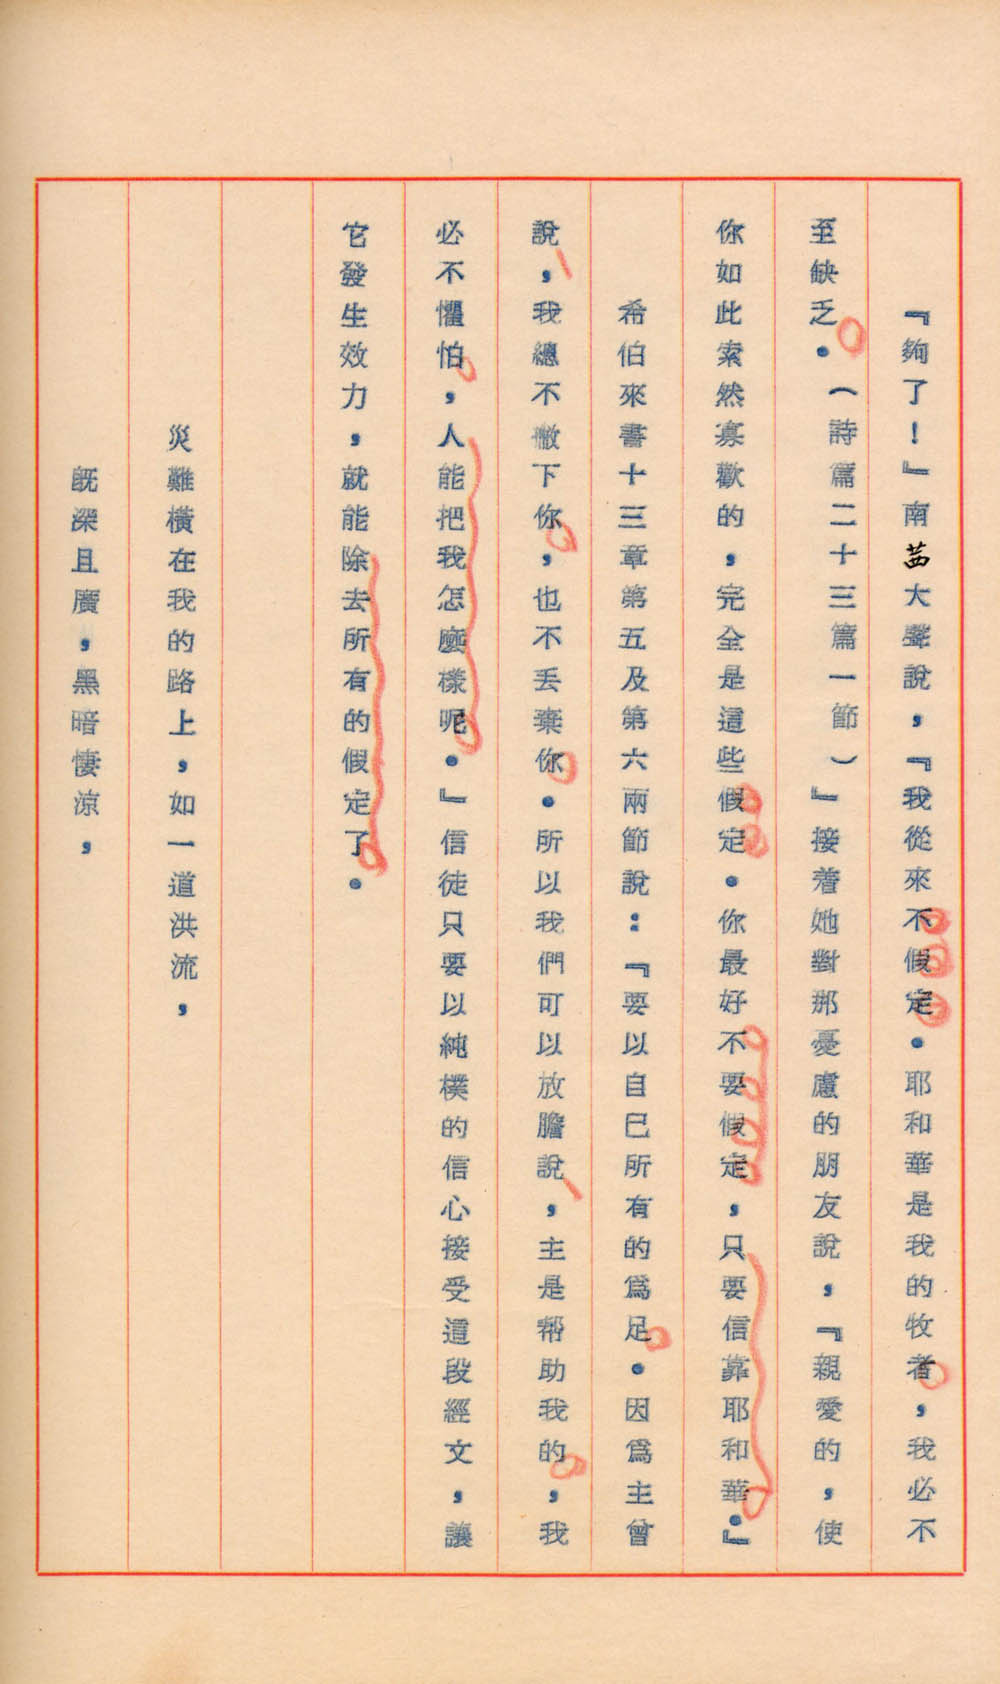 『夠了！』南茜大聲說，『我從來不假定．耶和華是我的牧者，我必不
至缺乏．（詩篇二十三篇一節）』接着她對那憂慮的朋友說，『親愛的，使
你如此索然寡歡的，完全是這些假定．你最好不要假定，只要信靠耶和華．』
希伯來書十三章第五及第六兩節說：『要以自己所有的爲足．因爲主曾
說，我總不撇下你，也不丢棄你．所以我們可以放膽說，主是帮助我的，我
必不懼怕，人能把我怎麽樣呢．』信徒只要以純樸的信心接受這段經文，讓
它發生效力，就能除去所有的假定了．
災難橫在我的路上，如一道洪流，
旣深且廣，黑暗悽凉，